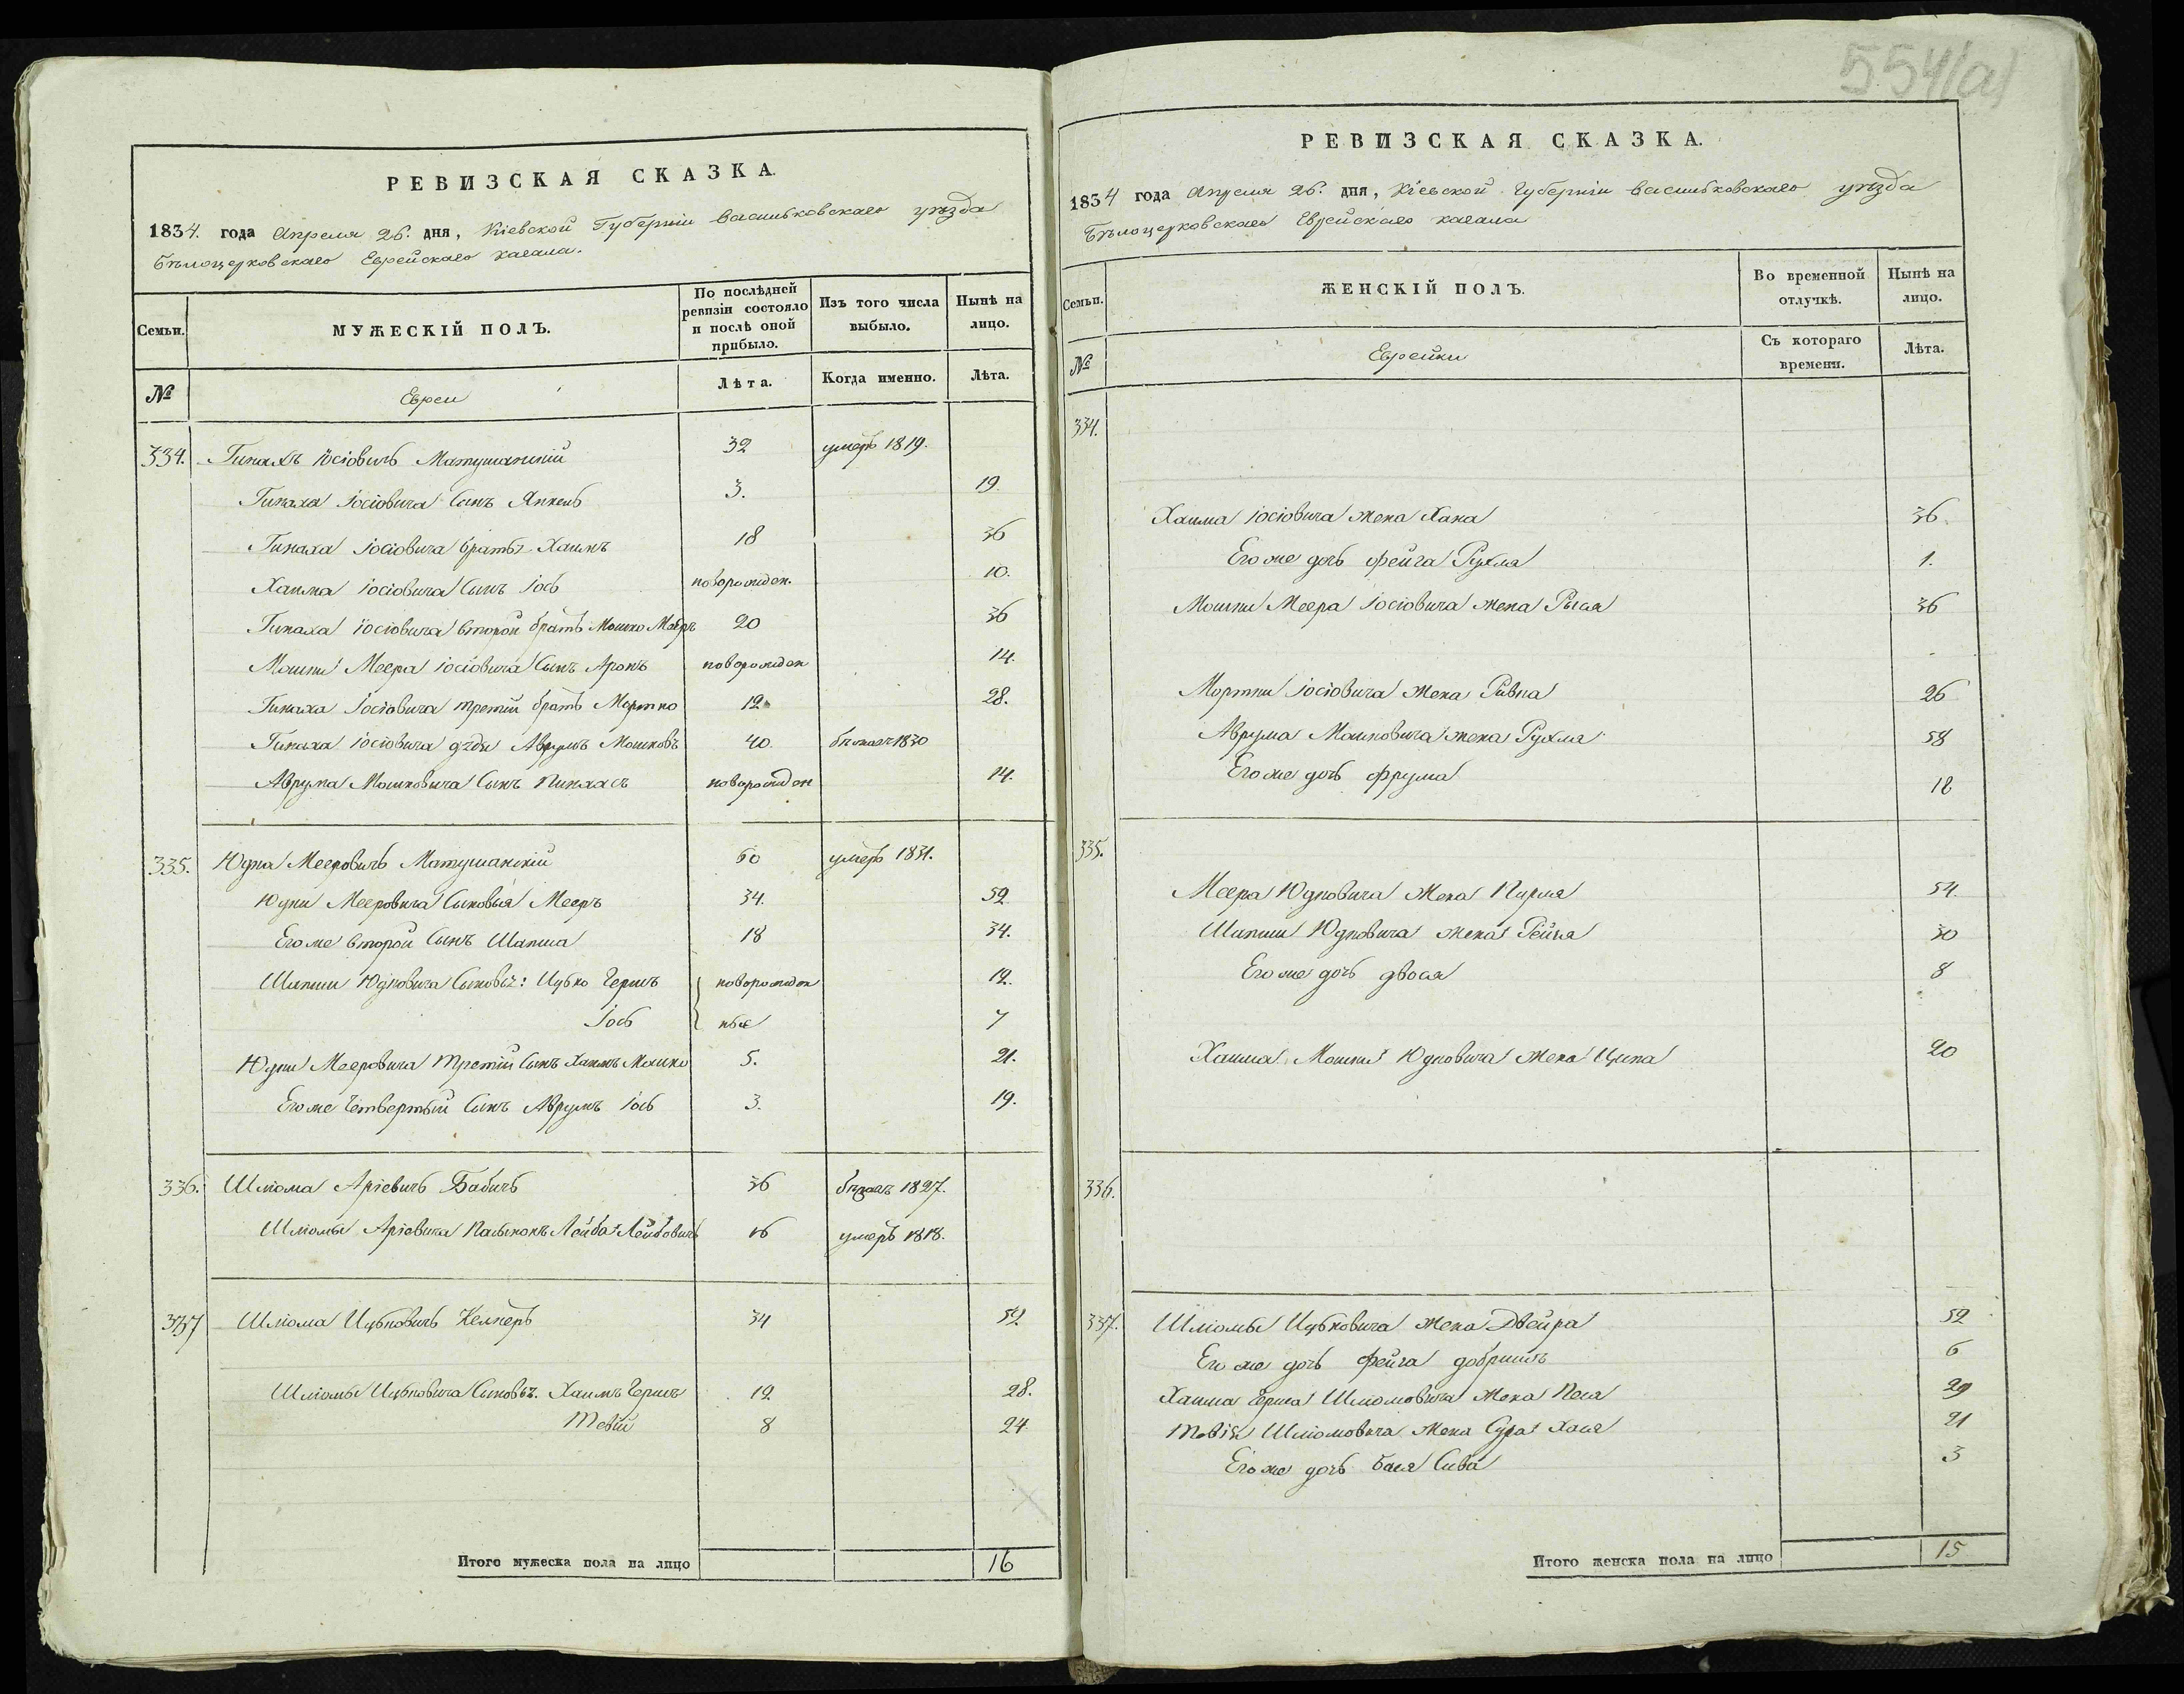 РЕВИЗСКАЯ СКАЗКА.
1834. года Апреля 26. дня, Кіевской Губерніи Васильковскаго уѣзда
Бѣлоцерковскаго Еврейскаго кагала.
Семьи. МУЖЕСКІЙ ПОЛЪ. По послѣдней ревизіи состояло и послѣ оной прибыло. Изъ того числа выбыло. Нынѣ на лицо.
№ Евреи Лѣта. Когда именно. Лѣта.
334. Іосіовичъ Матушанскій 32 умеръ 1819.
Іосіовича Сынъ Янкель 3. 19.
Іосіовича братья Хаимъ 18 36
Хаима Іосіовича Сынъ Іось новорожден. 10.
Іосіовича второй братъ Мошко Мееръ 20 36
Мошки Меера Іосіовича Сынъ Аронъ новорожден 14.
Іосіовича третій братъ Мортко 12. 28.
Іосіовича дядя Аврумъ Мошковъ 40. бѣжалъ 1830
Аврума Мошковича Сынъ Пинхасъ новорожден 14.
335. Юдка Мееровичъ Матушанскій 60 умеръ 1831.
Юдки Мееровича Сыновья Мееръ 34. 52
Его же второй Сынъ Шапша 18 34.
Шапши Юдковича Сыновья: Ицко Гершъ новорожден 12.
Іось ные 7
Юдки Мееровича третій Сынъ Хаимъ Мошко 5. 21.
Его же Четвертый Сынъ Аврумъ Іось 3. 19.
336. Шліома Аріевичъ Бабичъ 36 бѣжалъ 1827.
Шліомы Аріевича Пасынокъ Лейба Лейбовичъ 16 умеръ 1818.
337 Шліома Ицковичъ 34 52
Шліомы Ицковича Сыновья. Хаимъ Гершъ 12 28.
Тевій 8 24
Итого мужеска пола на лицо 16
554(а)
РЕВИЗСКАЯ СКАЗКА.
1834 года Апреля 26. дня, Кіевской Губерніи Васильковскаго уѣзда
Бѣлоцерковскаго Еврейскаго кагала
Семьи. ЖЕНСКІЙ ПОЛЪ. Во временной отлучкѣ. Нынѣ на лицо.
№ Еврейки Съ котораго времени. Лѣта.
334.
Хаима Іосіовича жена Хана 36.
Его же дочь Фейга Рухля 1.
Мошки Меера Іосіовича жена Рыся 36
Мортки Іосіовича жена Ривка 26
Аврума Мошковича жена Рухля 58
Его же дочь Фрума 18
335.
Меера Юдковича жена Пирля 54.
Шапши Юдковича жена Рейза 30
Его же дочь Двося 8
Хаима Мошки Юдковича жена Ципа 20
336.
337. Шліомы Ицковича жена Двейра 52
Его же дочь Фейга Добришъ 6
Хаима Герша Шліомовича жена Песа 29
Тевія Шліомовича жена Сура Хася 21
Его же дочь Бася Сива 3
Итого женска пола на лицо 15